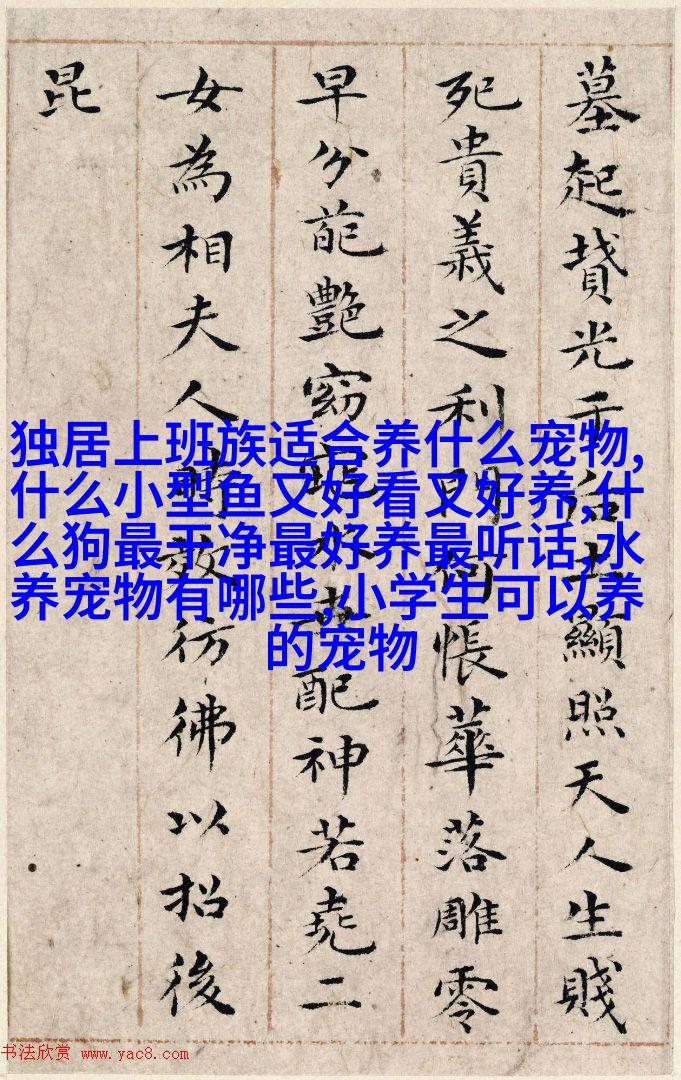 墓起墳光于后土顯照天人生賤
死貴義之利門何悵華落雕零
早分葩艷窈窕永世配神若堯二
女為相夫人時效彷彿以招後
昆
独居上班族适合养什么宠物,
什么小型鱼又好看又好养,什
么狗最干净最好养最听话,水
养宠物有哪些,小学生可以养
的宠物
书法欣赏 www.yac8.com